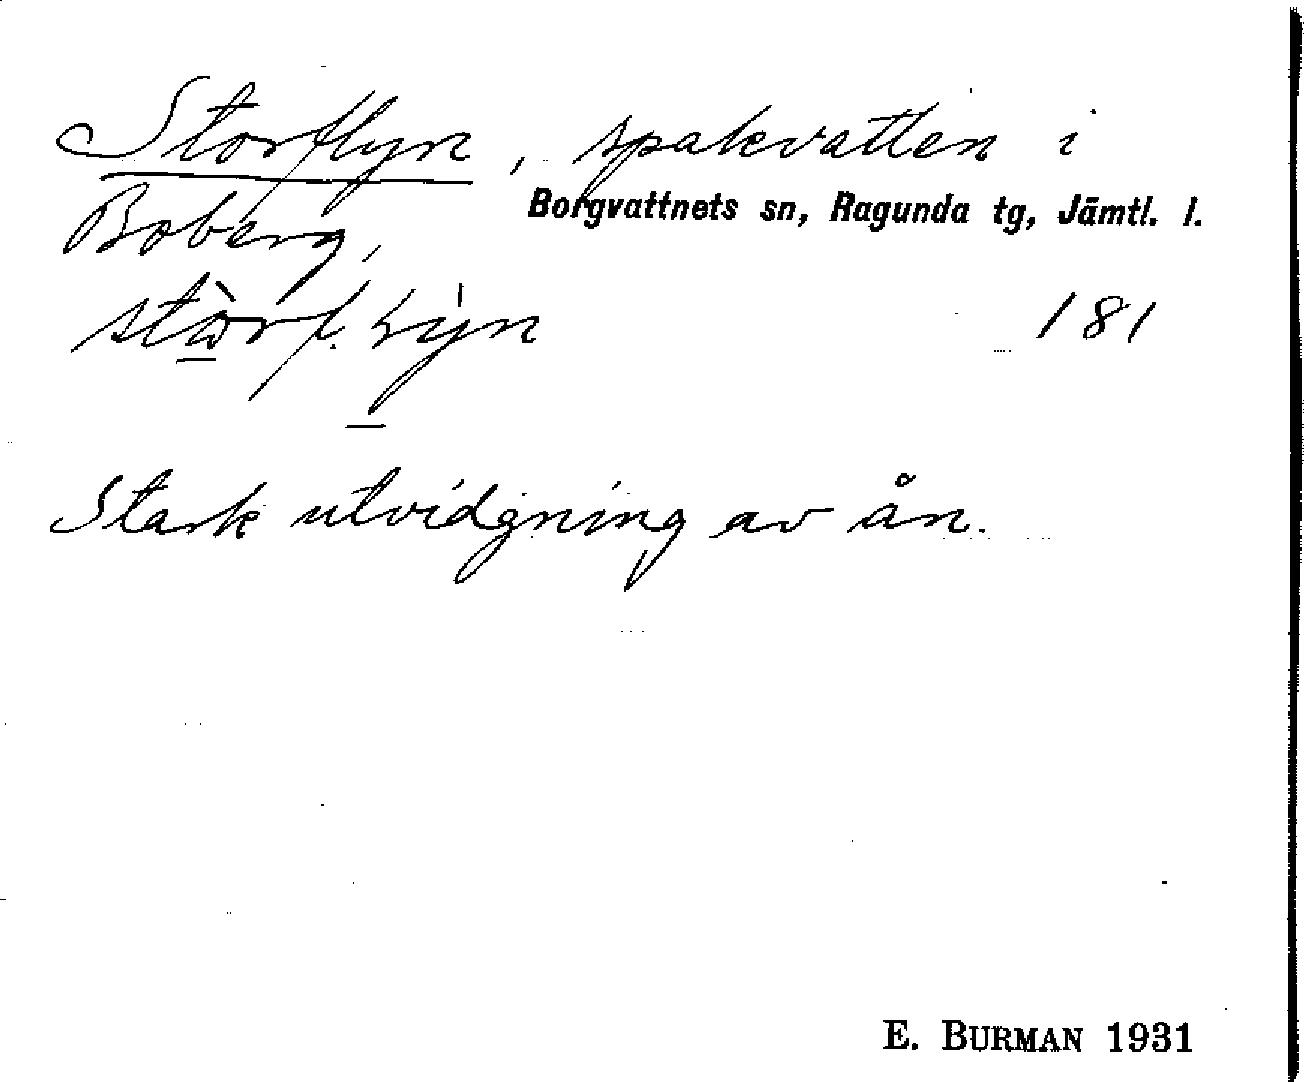 Storflyn, spakvatten i
Borgvattnets sn, Ragunda tg, Jämtl. l.
Boberg,
181
Stark utvidgning av ån.
E. BURMAN 1931